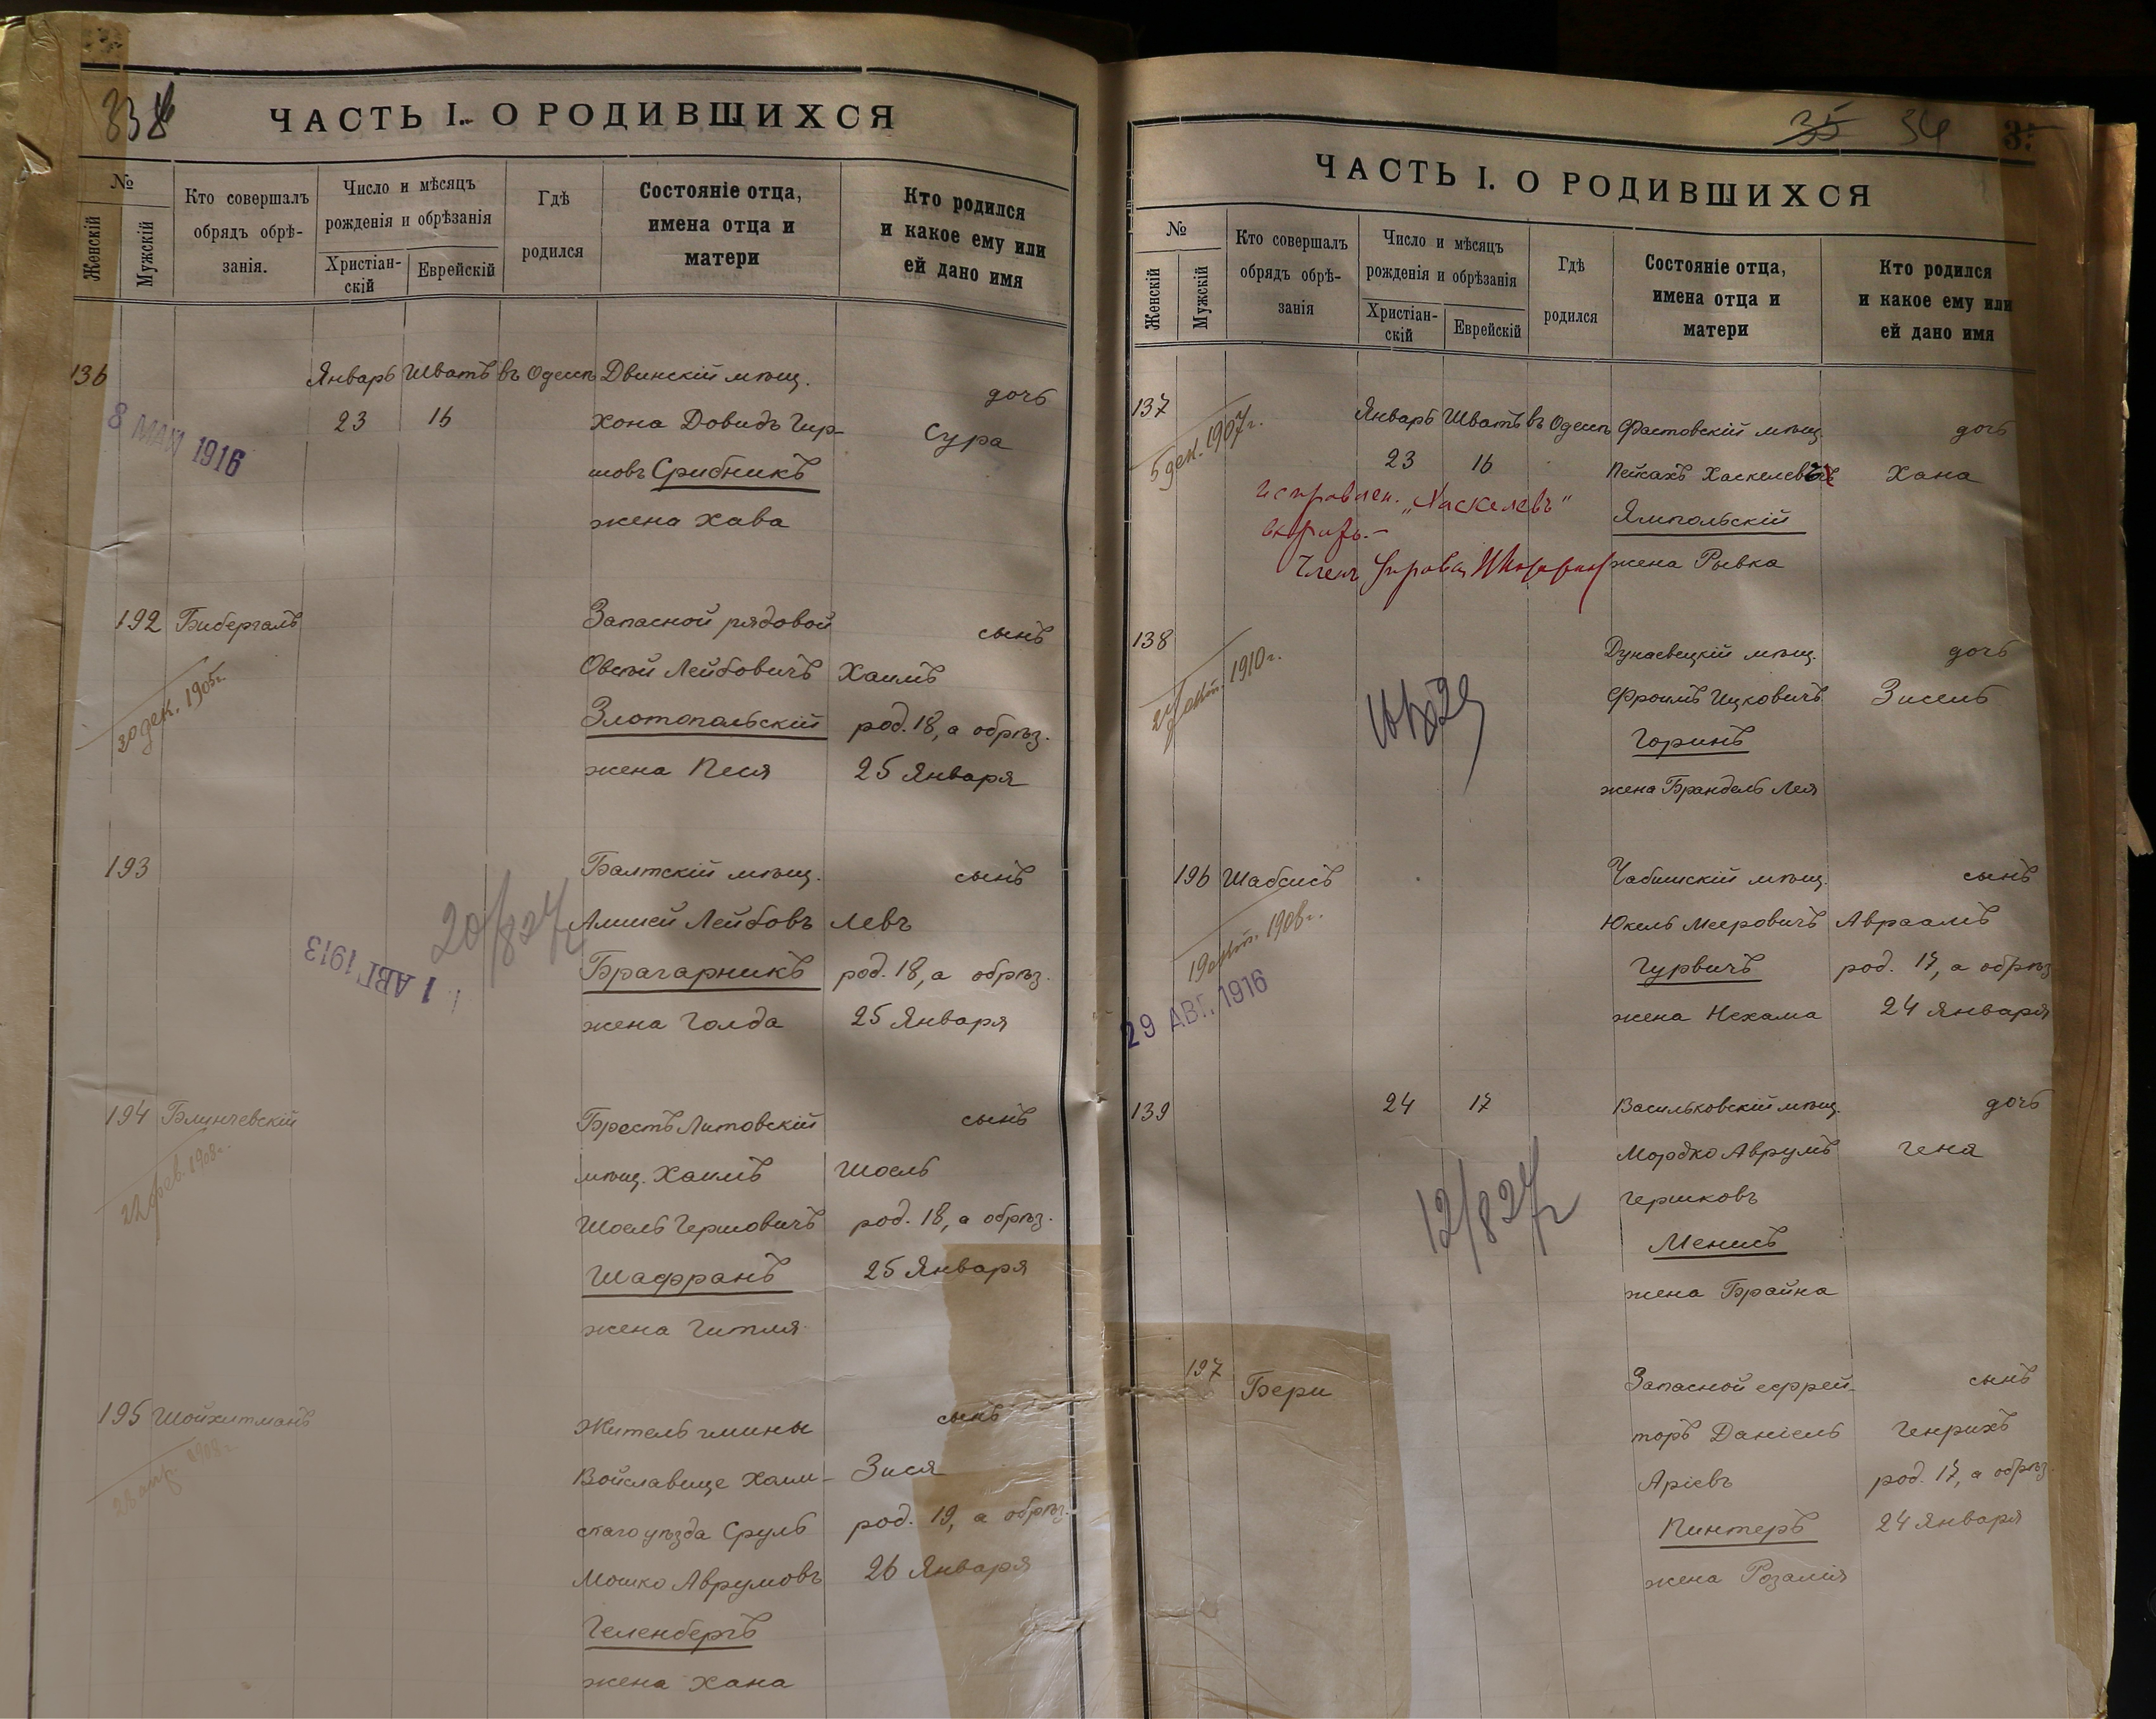 ЧАСТЬ I. О РОДИВШИХСЯ
№
Женскій
Мужскій
Кто совершалъ обрядъ обрѣ-занія.
Число и мѣсяцъ рожденія и обрѣзанія
Христіан-скій
Еврейскій
Гдѣ родился
Состояніе отца, имена отца и матери
Кто родился и какое ему или ей дано имя
136 Январь Шватъ въ Одессѣ Двинскій мѣщ. дочь
23 16 Хона Довидъ Гир- Сура
8 МАЯ 1916
шовъ Срибникъ
жена Хава
192 Бибергалъ Запасной рядовой сынъ
Овсѣй Лейбовичъ Хаимъ
30 дек. 1905г.
Златопольскій род. 18, а обрѣз.
жена Песя 25 Января
193 Балтскій мѣщ. сынъ
20/8 24 г
Лейбовъ Левъ
1 АВГ 1913
Брагарникъ род. 18, а обрѣз.
жена Голда 25 Января
194 Блинчевскій Брестъ Литовскій сынъ
мѣщ. Хаимъ Шоель
22 фев. 1908г.
Шоель Гершовичъ род. 18, а обрѣз.
Шафранъ 25 Января
жена Гитля
195 Шойхитманъ Житель гмины сынъ
Войславице Холм- Зися
скаго уѣзда Сруль род. 19, а обрѣз.
Мошко Аврумовъ 26 Января
Геленбергъ
жена Хана
35 34
ЧАСТЬ I. О РОДИВШИХСЯ
№
Женскій
Мужскій
Кто совершалъ обрядъ обрѣ-занія
Число и мѣсяцъ рожденія и обрѣзанія
Христіан-скій
Еврейскій
Гдѣ родился
Состояніе отца, имена отца и матери
Кто родился и какое ему или ей дано имя
137 Январь Шватъ въ Одессѣ Фастовскій мѣщ. дочь
5 дек. 1907г.
23 16 Пейсахъ Хаскелевъ Хана
исправлен. „Хаскелевъ"
Ямпольскій
вѣрить.-
Членъ Управы
жена Рывка
138 Дунаевецкій мѣщ. дочь
1910г.
Фроимъ Ицковичъ Зисель
Горинъ
жена Брандель Лея
196 Шабсисъ мѣщ. сынъ
Юкель Мееровичъ Авраамъ
1908г.
Гурвичъ род. 17, а обрѣз.
29 АВГ. 1916
жена Нехама 24 Января
139 24 17 Васильковскій мѣщ. дочь
Мордко Аврумъ Геня
12/8 24 г
Гершковъ
Менисъ
жена Брайна
197 Бери Запасной ефрей- сынъ
торъ Даніель Генрихъ
Аріевъ род. 17, а обрѣз.
Пинтеръ 24 Января
жена Розалія